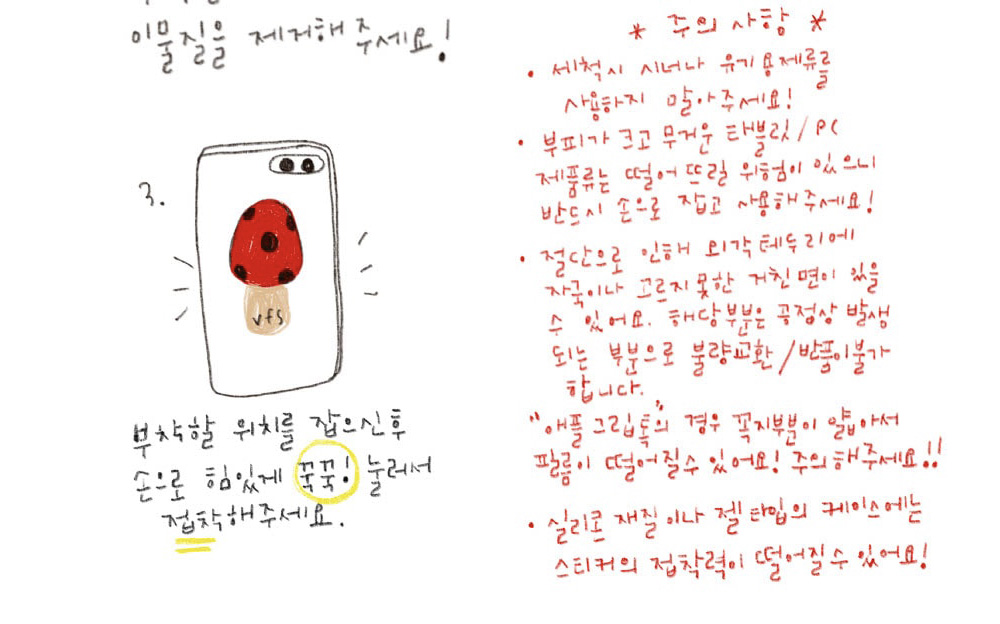 이물질을 제거해주세요!
3.
vfs
부착할 위치를 잡으신후
손으로 힘있게 꾹꾹! 눌러서
접착해주세요.
* 주의 사항 *
• 세척시 시너나 유기용제류를
사용하지 말아주세요!
• 부피가 크고 무거운 태블릿/PC
제품류는 떨어 뜨릴 위험이 있으니
반드시 손으로 잡고 사용해주세요!
• 절단으로 인해 외각테두리에
자국이나 고르지못한 거친면이 있을
수 있어요. 해당부분은 공정상 발생
되는 부분으로 불량교환/반품이불가
합니다.
"애플그립톡"의 경우 꼭지부분이 얇아서
필름이 떨어질수 있어요! 주의해주세요!!
• 실리콘 재질이나 젤타입의 케이스에는
스티커의 접착력이 떨어질수 있어요!